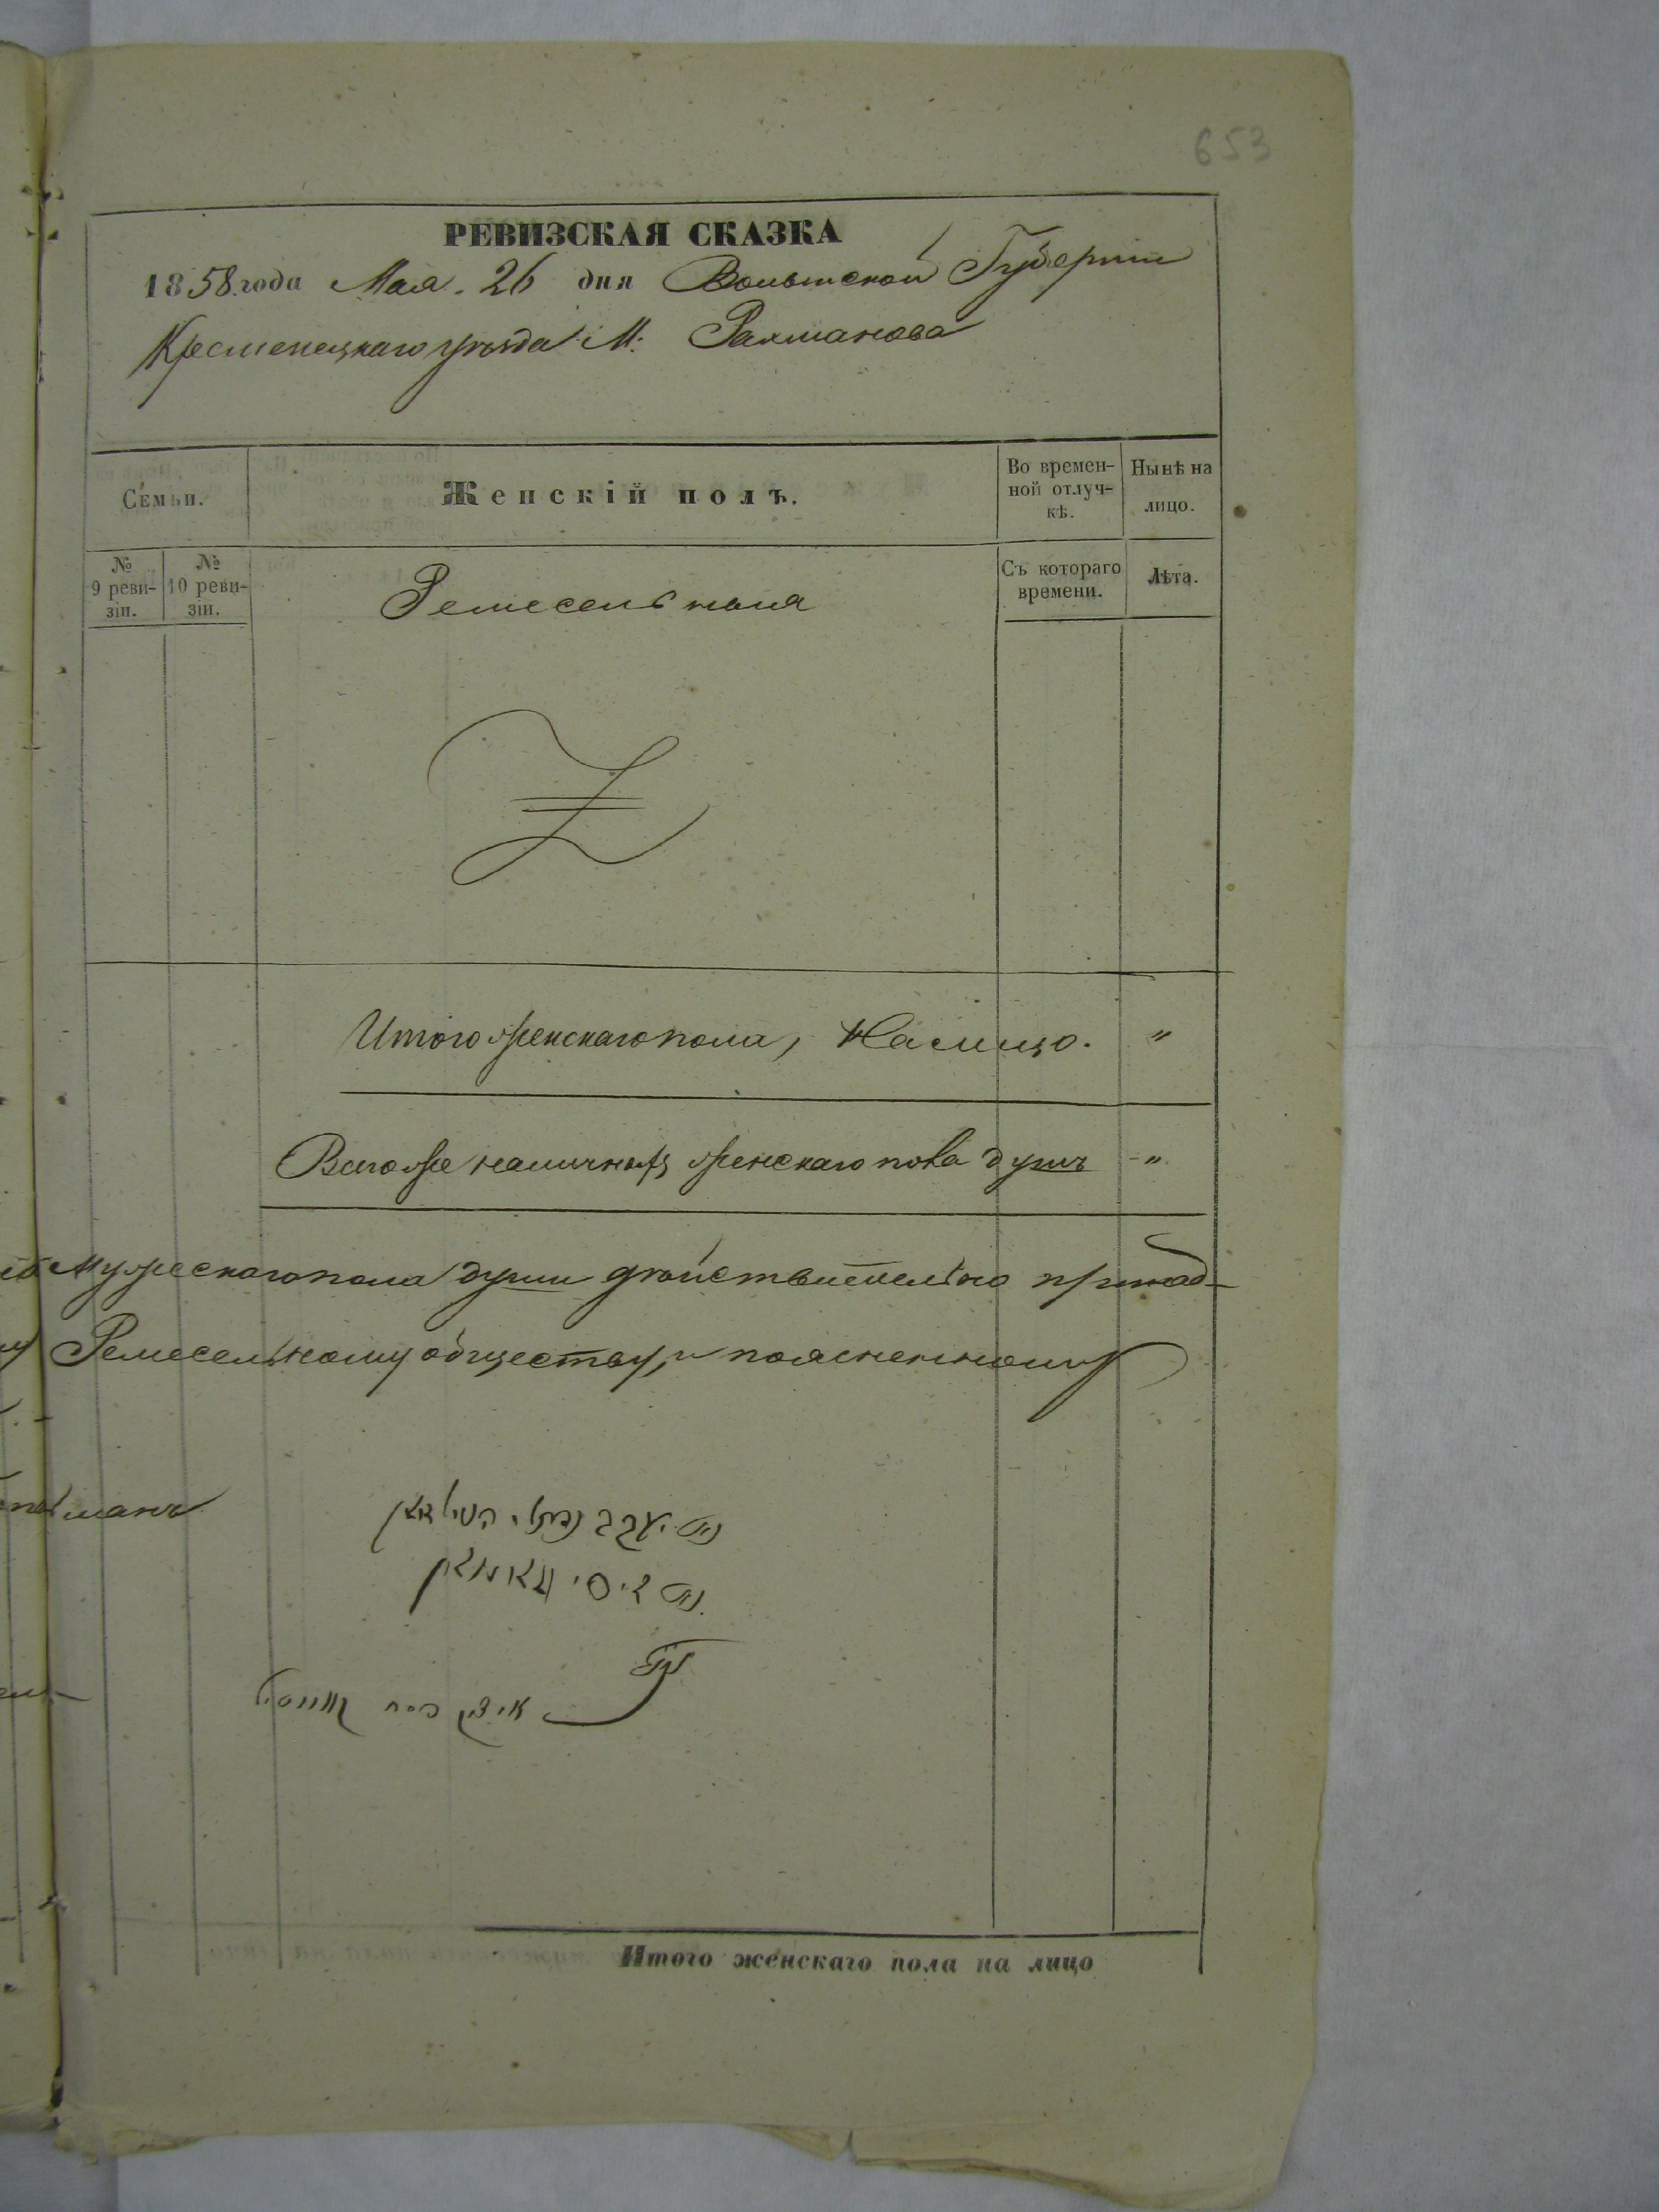 653
РЕВИЗСКАЯ СКАЗКА
1858 года Мая 26 дня Волынской Губерніи
Кременецкаго уѣзда М. Рахманова
Семьи.
Женскій полъ.
Во времен-
ной отлуч-
кѣ.
Нынѣ на
лицо.
№
9 реви-
зіи.
№
10 реви-
зіи.
Ремесельныя
Съ котораго
времени.
Лѣта.
Итого женскаго пола, Налицо. "
Всего же наличныхъ женскаго пола душъ - "
Мужескаго пола души дѣйствительно принад-
Ремесельному обществу, и поясненному
נפתלי
איציק
Итого женскаго пола на лицо